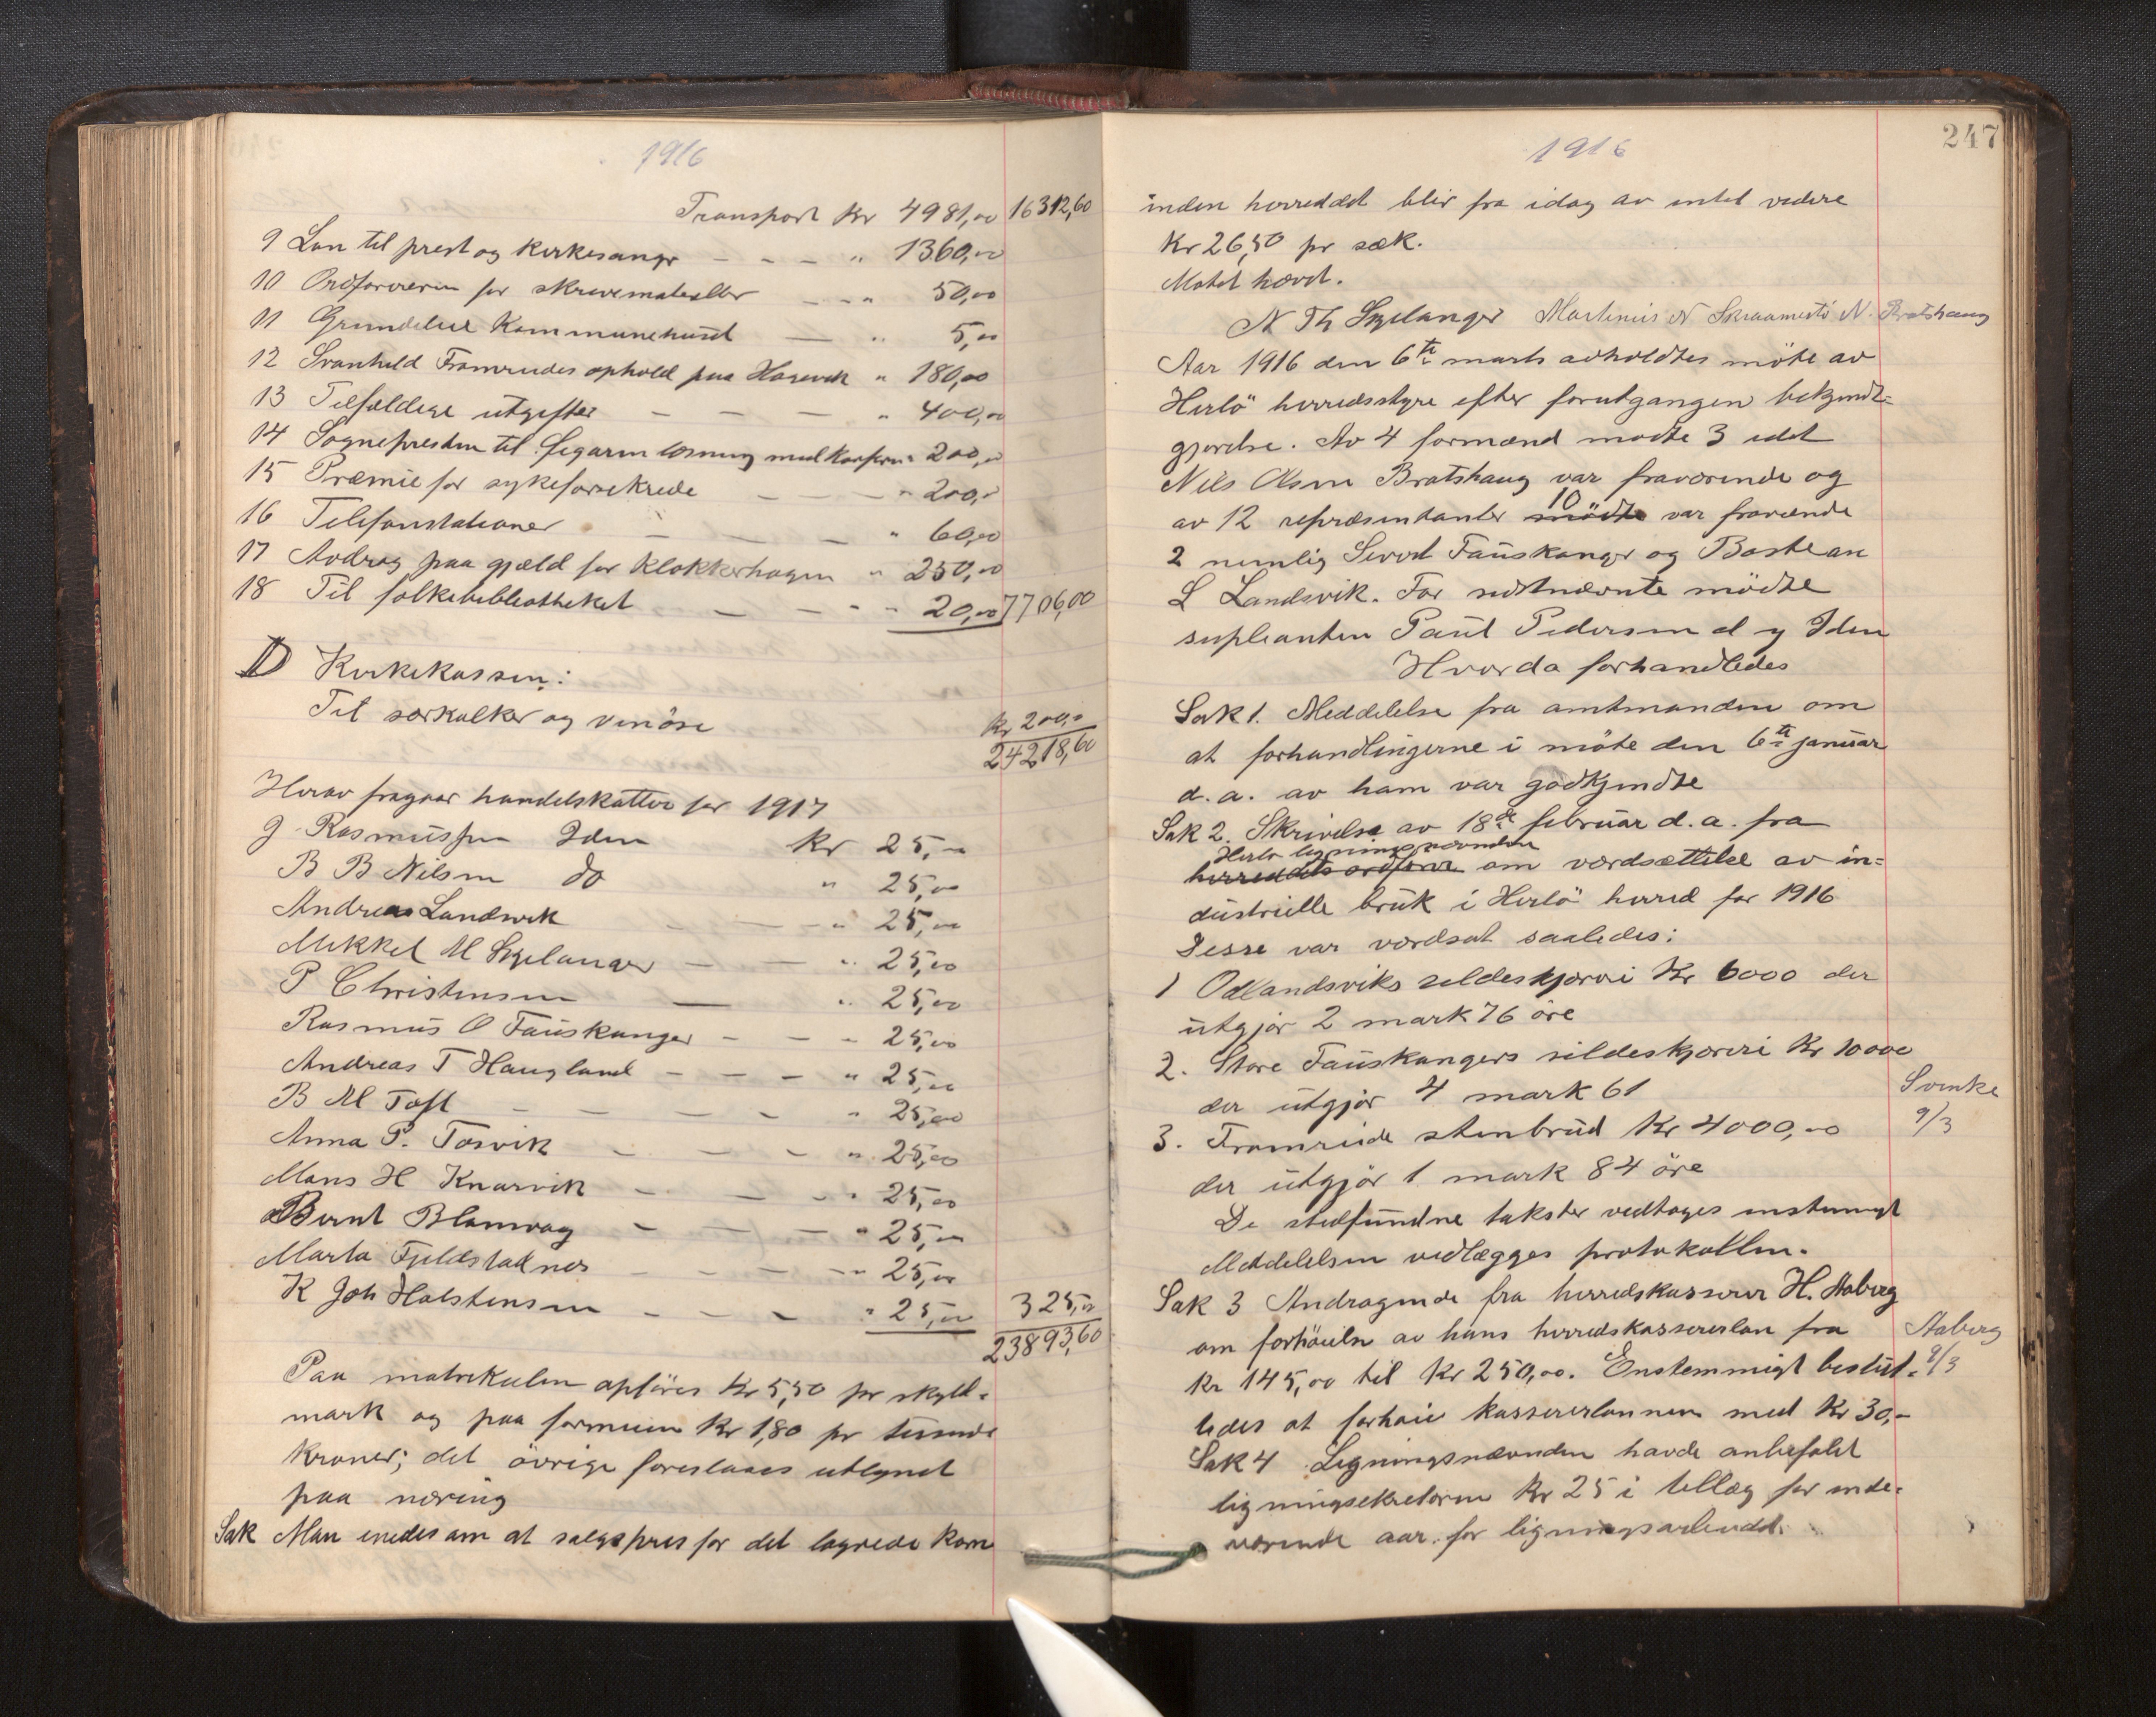 1916
Transport Kr 4981,00 16312,60
9 Løn til prest og kirkesanger — — — " 1360,00
10 Ordføreren for skrivematerialler — - " 50,00
11 Grundleie Kommunehuset — " 5,00
12 Svanhild Framruides ophold paa Hosevik " 180,00
13 Tilfældige utgifter — — — " 400,00
14 Sognepresten til læsning med konfirm " 200,00
15 Præmie for sykeforsikrede — — " 200,00
16 Telefonstationer — — — " 60,00
17 Avdrag paa gjæld for Klokkerhagen " 250,00
18 Til folkebibliotheket — — - " 20,00 7706,00
D Kirkekassen:
Til særkalker og vinöse Kr 200,00
24218,60
Herav fragaar handelskatter for 1917
J Rasmussen Iden Kr 25,00
B B Nilsen do " 25,00
Andreas Landsvik — " 25,00
Mikkel M Skjelanger — — " 25,00
P Christensen — " 25,00
Rasmus O Fauskanger — — - 25,00
Andreas T Haugland — — — " 25,00
B M Toft — — — — " 25,00
Anna P. Tosvik — — — " 25,00
Mons H Knarvik — — - " 25,00
Bernt Blomvag — — — " 25,00
Marta Fjeldstaknes — — — " 25,00
K Joh Holstensen — — — " 25,00 325,00
23893,60
Paa matrikulen opföres Kr 5,50 pr skyld-
mark og paa formuen Kr 1,80 pr tusende
kroner; det övrige foreslaaes utlignet
paa næring
Sak Man enedes om at salgspris for det lagrede korn
1916
247
inden herredet blir fra idag av intet videre
Kr 26,50 pr sæk.
Motet hævet.
N Th Skjelanger Martinus N Skraamestö N. Bratshaug
Aar 1916 den 6te marts avholdtes möte av
Herlö herredsstyre efter forutgangen bekjendt=
gjørelse. Av 4 formænd mødte 3 idet
Nils Olsen Bratshaug var fraværende og
av 12 repræsentanter mödte 10 var fraværende
2 nemlig Sivert Fauskanger og Bastean
L Landsvik. For sidstnævnte mödte
supleanten Paul Pedersen d y Iden
Hvorda forhandledes
Sak 1. Meddelelse fra amtmanden om
at forhandlingerne i möte den 6te januar
d. a. av ham var godkjendte
Sak 2. Skrivelse av 18de februar d. a. fra
Herlö ligningsnævnden
herredets ordförer om værdsættelse av in=
dustrielle bruk i Herlö herred for 1916
Disse var værdsat saaledes:
1 Odlandsviks sildeskjæreri Kr 6000 der
utgjør 2 mark 76 öre
2. Store Fauskangers sildeskjæreri Kr 10000
der utgjør 4 mark 61
Svinke
9/3
3. Framruide stenbrud Kr 4000,00
der utgjör 1 mark 84 öre
De stedfundne takster vedtoges enstemmigt
Meddelelsen vedlægges protokollen.
Sak 3 Andragende fra herredskasserer H. Aaberg
om forhöielse av hans herredskassererløn fra
Aaberg
9/3
Kr 145,00 til Kr 250,00. Enstemmigt beslut-
tedes at forhøie kassererlønnen med Kr 30,-
Sak 4 Ligningsnævnden havde anbefalet
ligningsekretæren Kr 25 i tillæg for inde-
værende aar. for ligningsarbeidet.